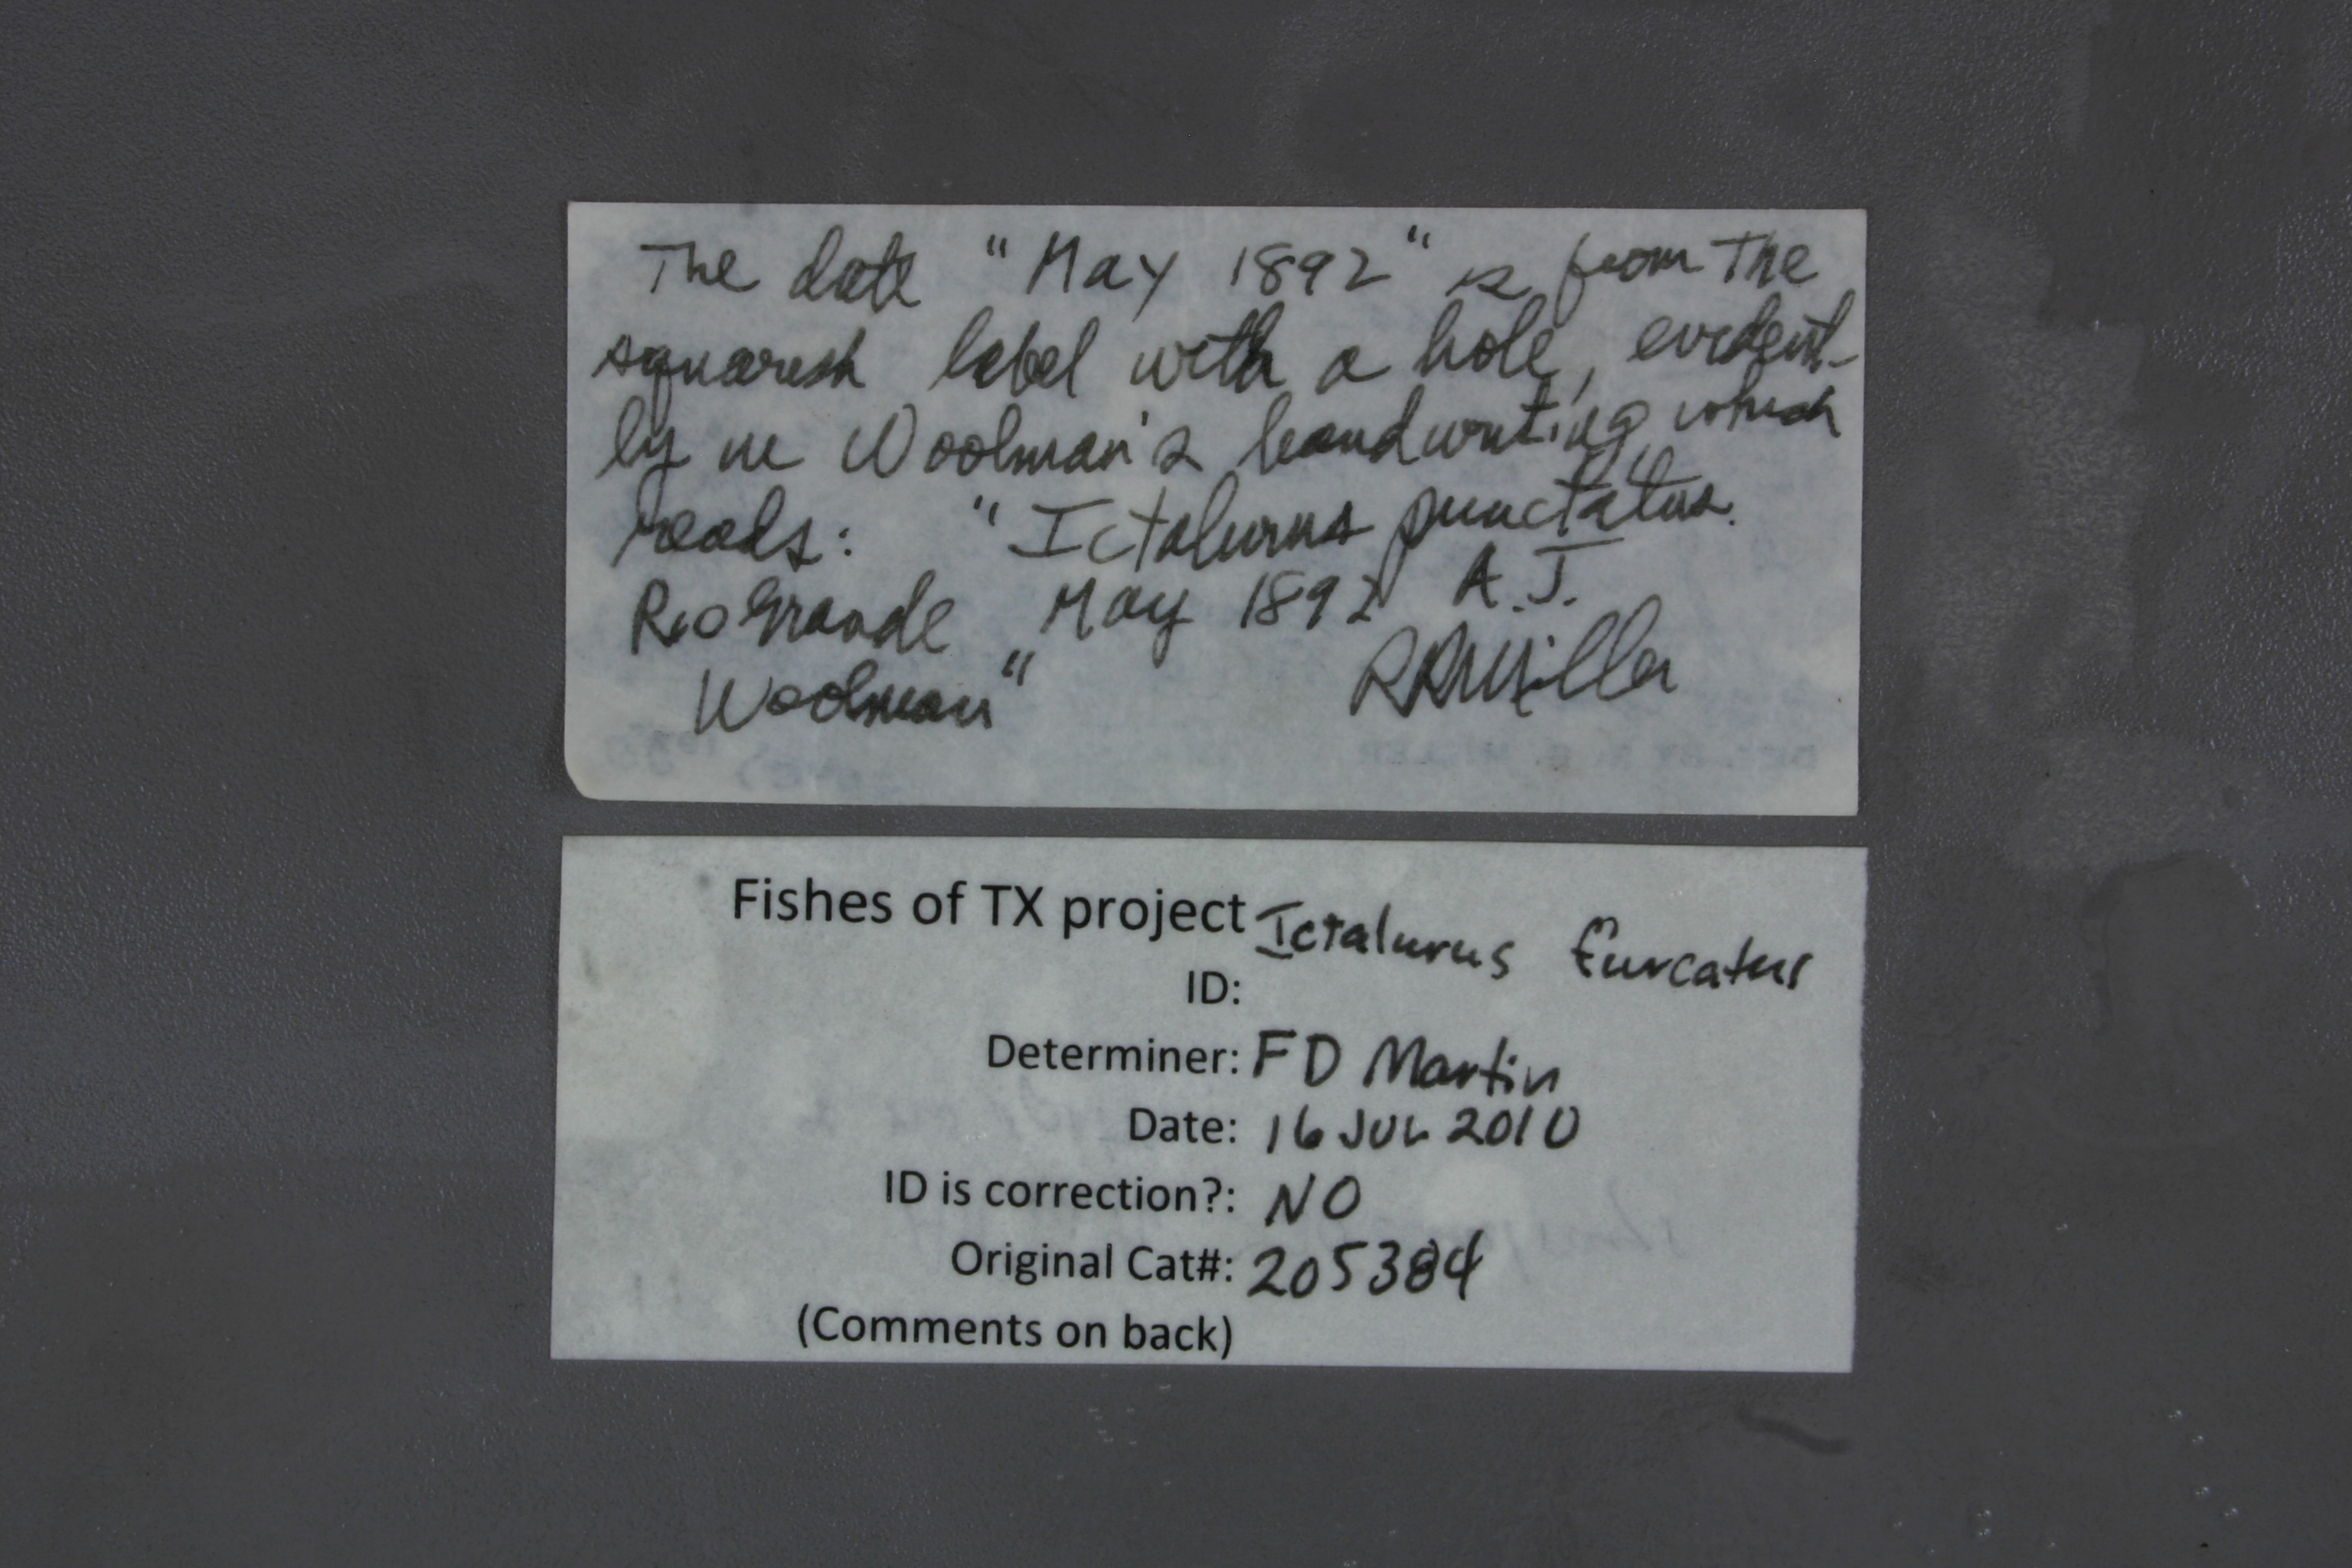 The date "May 1892" is from The
squarish label with a hole, evident-
ly in Woolman's handwriting which
reads: "Ictalurus punctatus.
Rio Grande May 1892 A.J.
Woolman" RRMiller
Fishes of TX project Ictalurus furcatus
ID:
Determiner: FD Martin
Date: 16 JUL 2010
ID is correction?: NO
Original Cat#: 205384
(Comments on back)